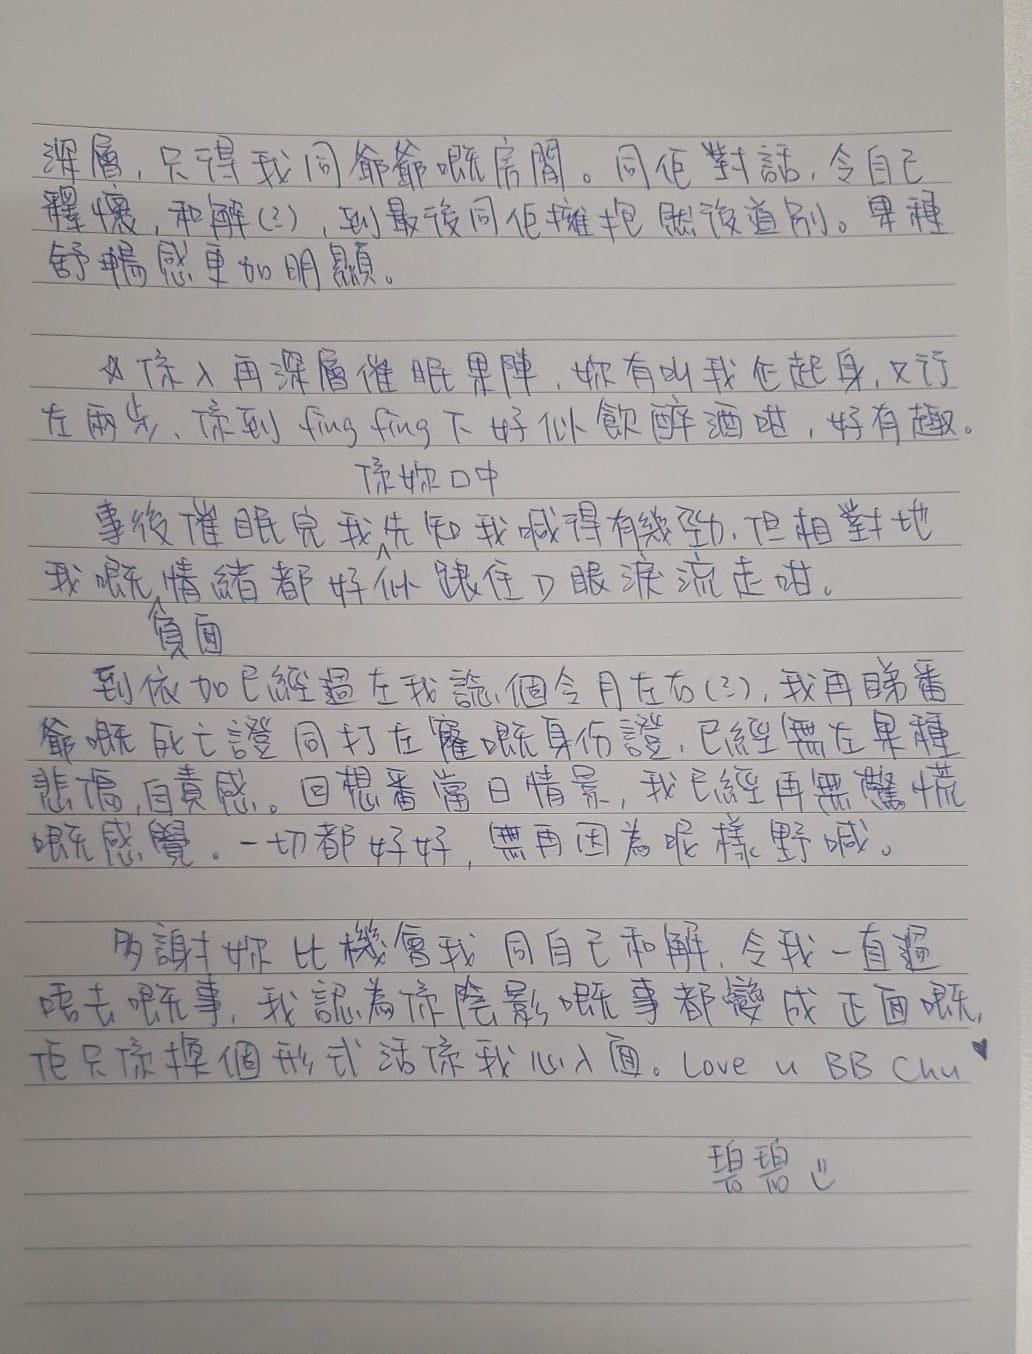 深層，只得我同爺爺嘅房間。同佢對話，令自己
釋懷，和解(?)，到最後同佢擁抱然後道別。果種
舒暢感更加明顯。
☆係入再深層催眠果陣，妳有叫我企起身，又行
左兩步，係到fing fing下好似飲醉酒咁，好有趣。
係妳口中
事後催眠完我先知我喊得有幾勁，但相對地
我嘅情緒都好似跟住D眼淚流走咁。
負面
到依加已經過左我諗個令月左右(?)，我再睇番
爺嘅死亡證同打左窿嘅身份證，已經無左果種
悲傷，自責感。回想番當日情景，我已經再無驚慌
嘅感覺。一切都好好，無再因為呢樣野喊。
多謝妳比機會我同自己和解，令我一直過
唔去嘅事，我認為係陰影嘅事都變成正面嘅，
佢只係換個形式活係我心入面。Love u BB Chu ♥
碧碧